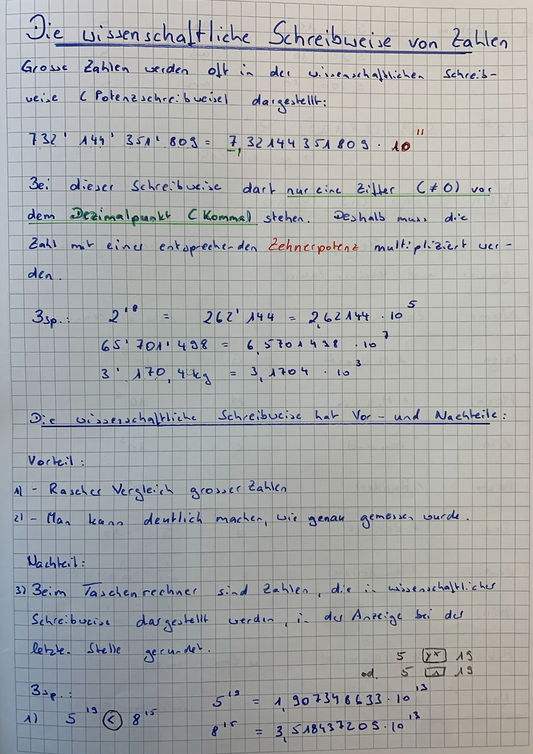 Die wissenschaftliche Schreibweise von Zahlen
Grosse Zahlen werden oft in der wissenschaftlichen Schreib-
weise (Potenzschreibweise) dargestellt:
732' 144' 351' 809 = 7,32144351809 · 10^11
Bei dieser Schreibweise darf nur eine Ziffer (≠0) vor
dem Dezimalpunkt (Komma) stehen. Deshalb muss die
Zahl mit einer entsprechenden Zehnerpotenz multipliziert wer-
den.
Bsp.: 2^18 = 262' 144 = 2,62144 · 10^5
65' 701' 498 = 6,5701498 · 10^7
3' 170,4 kg = 3,1704 · 10^3
Die wissenschaftliche Schreibweise hat Vor- und Nachteile:
Vorteil:
1) - Rascher Vergleich grosser Zahlen
2) - Man kann deutlich machen, wie genau gemessen wurde.
Nachteil:
3) Beim Taschenrechner sind Zahlen, die in wissenschaftlicher
Schreibweise dargestellt werden, in der Anzeige bei der
letzten Stelle gerundet.
5 [y^x] 19
od. 5 [^] 19
Bsp.:
1) 5^19 < 8^15
5^19 = 1,907348633 · 10^13
8^15 = 3,518437209 · 10^13